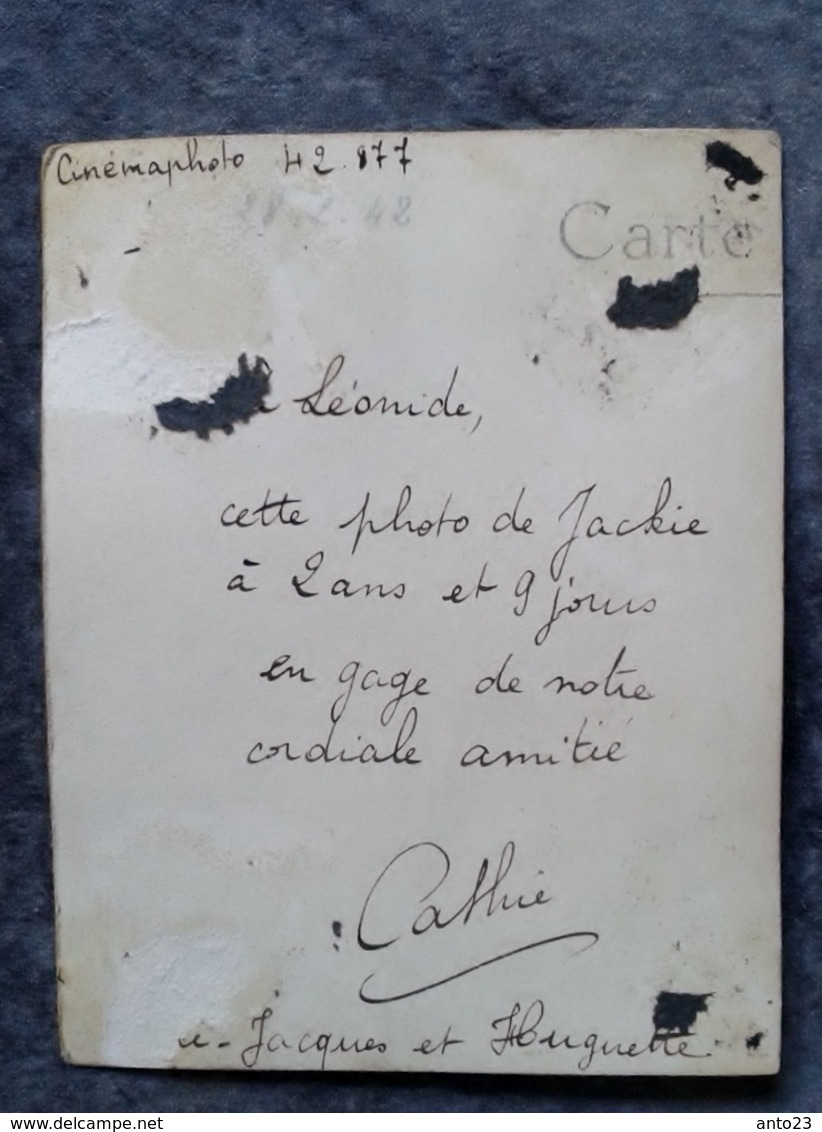 Cinémaphoto 42.877
28.2.42
Carte
Léonide,
cette photo de Jackie
à 2 ans et 9 jours
en gage de notre
cordiale amitié
Cathie
Jacques et Huguette
delcampe.net
anto23